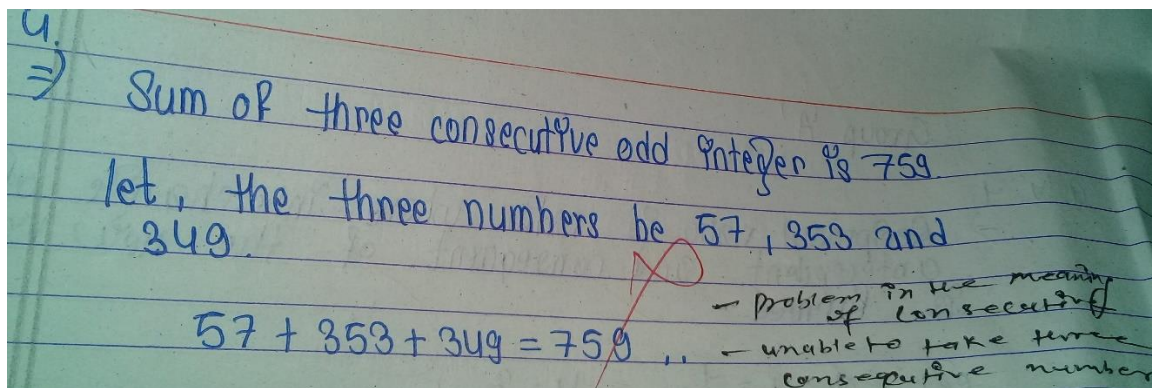 4.
⇒ Sum of three consecutive odd integer is 759.
let, the three numbers be 57, 353 and
349.
57 + 353 + 349 = 759 ..
- problem in the meaning
of consecutive
- unable to take three
consequtive number